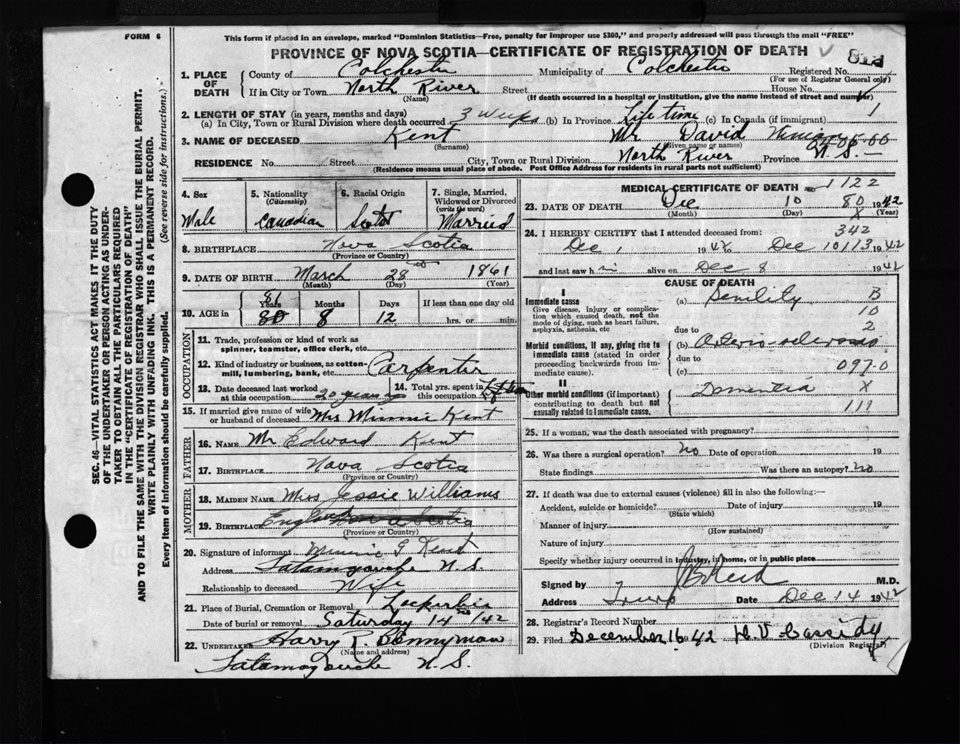 FORM 6
This form if placed in an envelope, marked "Dominion Statistics—Free, penalty for improper use $300," and properly addressed will pass through the mail "FREE"
PROVINCE OF NOVA SCOTIA—CERTIFICATE OF REGISTRATION OF DEATH
1. PLACE OF DEATH
County of Colchester Municipality of Colchester Registered No.
(For use of Registrar General only)
If in City or Town North River Street House No.
(Name) (If death occurred in a hospital or institution, give the name instead of street and number)
2. LENGTH OF STAY (in years, months and days)
(a) In City, Town or Rural Division where death occurred 3 weeks (b) In Province Life time (c) In Canada (if immigrant) 1
3. NAME OF DECEASED Kent Mr David
(Surname) (Given name or names)
RESIDENCE No. Street City, Town or Rural Division North River Province N.S.
(Residence means usual place of abode. Post Office Address for residents in rural parts not sufficient)
4. Sex Male
5. Nationality (Citizenship) Canadian
6. Racial Origin
7. Single, Married, Widowed or Divorced (write the word) Married
8. BIRTHPLACE Nova Scotia
(Province or Country)
9. DATE OF BIRTH March 28 1861
(Month) (Day) (Year)
10. AGE in Years 81 80 Months 8 Days 12 If less than one day old hrs. or min.
OCCUPATION
11. Trade, profession or kind of work as spinner, teamster, office clerk, etc.
12. Kind of industry or business, as cotton-mill, lumbering, bank, etc. Carpenter
13. Date deceased last worked at this occupation 20 years
14. Total yrs. spent in this occupation
15. If married give name of wife or husband of deceased Mrs Minnie Kent
FATHER
16. NAME Mr Edward Kent
17. BIRTHPLACE Nova Scotia
(Province or Country)
MOTHER
18. MAIDEN NAME Miss Jessie Williams
19. BIRTHPLACE England Nova Scotia
(Province or Country)
20. Signature of informant Minnie G Kent
Address Tatamagouche N.S.
Relationship to deceased Wife
21. Place of Burial, Cremation or Removal
Date of burial or removal Saturday 14 '42
22. UNDERTAKER Harry R. Bonnyman
(Name and address)
Tatamagouche N.S.
MEDICAL CERTIFICATE OF DEATH 1122
23. DATE OF DEATH Dec 10 80 1942
(Month) (Day) X
24. I HEREBY CERTIFY that I attended deceased from: 342
Dec 1 1942 to Dec 10 113 1942
and last saw him alive on Dec 8 1942
CAUSE OF DEATH
I
Immediate cause (a) Senility B
Give disease, injury or complication which caused death, not the mode of dying, such as heart failure, asphyxia, asthenia, etc 10
due to 2
Morbid conditions, if any, giving rise to immediate cause (stated in order proceeding backwards from immediate cause). (b) Arterio-sclerosis
due to
(c) 097.0
II
Other morbid conditions (if important) contributing to death but not causally related to immediate cause. Dementia X
111
25. If a woman, was the death associated with pregnancy?
26. Was there a surgical operation? No Date of operation 19
State findings Was there an autopsy? No
27. If death was due to external causes (violence) fill in also the following:—
Accident, suicide or homicide? Date of injury 19
(State which)
Manner of injury
(How sustained)
Nature of injury
Specify whether injury occurred in industry, in home, or in public place
Signed by M.D.
Address Truro Date Dec 14 1942
28. Registrar's Record Number
29. Filed December 16 42 H.V. Cassidy
(Division Registrar)
SEC. 46—VITAL STATISTICS ACT MAKES IT THE DUTY
OF THE UNDERTAKER OR PERSON ACTING AS UNDER-
TAKER TO OBTAIN ALL THE PARTICULARS REQUIRED
IN THE "CERTIFICATE OF REGISTRATION OF DEATH"
AND TO FILE THE SAME WITH THE DIVISION REGISTRAR WHO SHALL ISSUE THE BURIAL PERMIT.
WRITE PLAINLY WITH UNFADING INK. THIS IS A PERMANENT RECORD.
Every item of information should be carefully supplied. (See reverse side for instructions.)